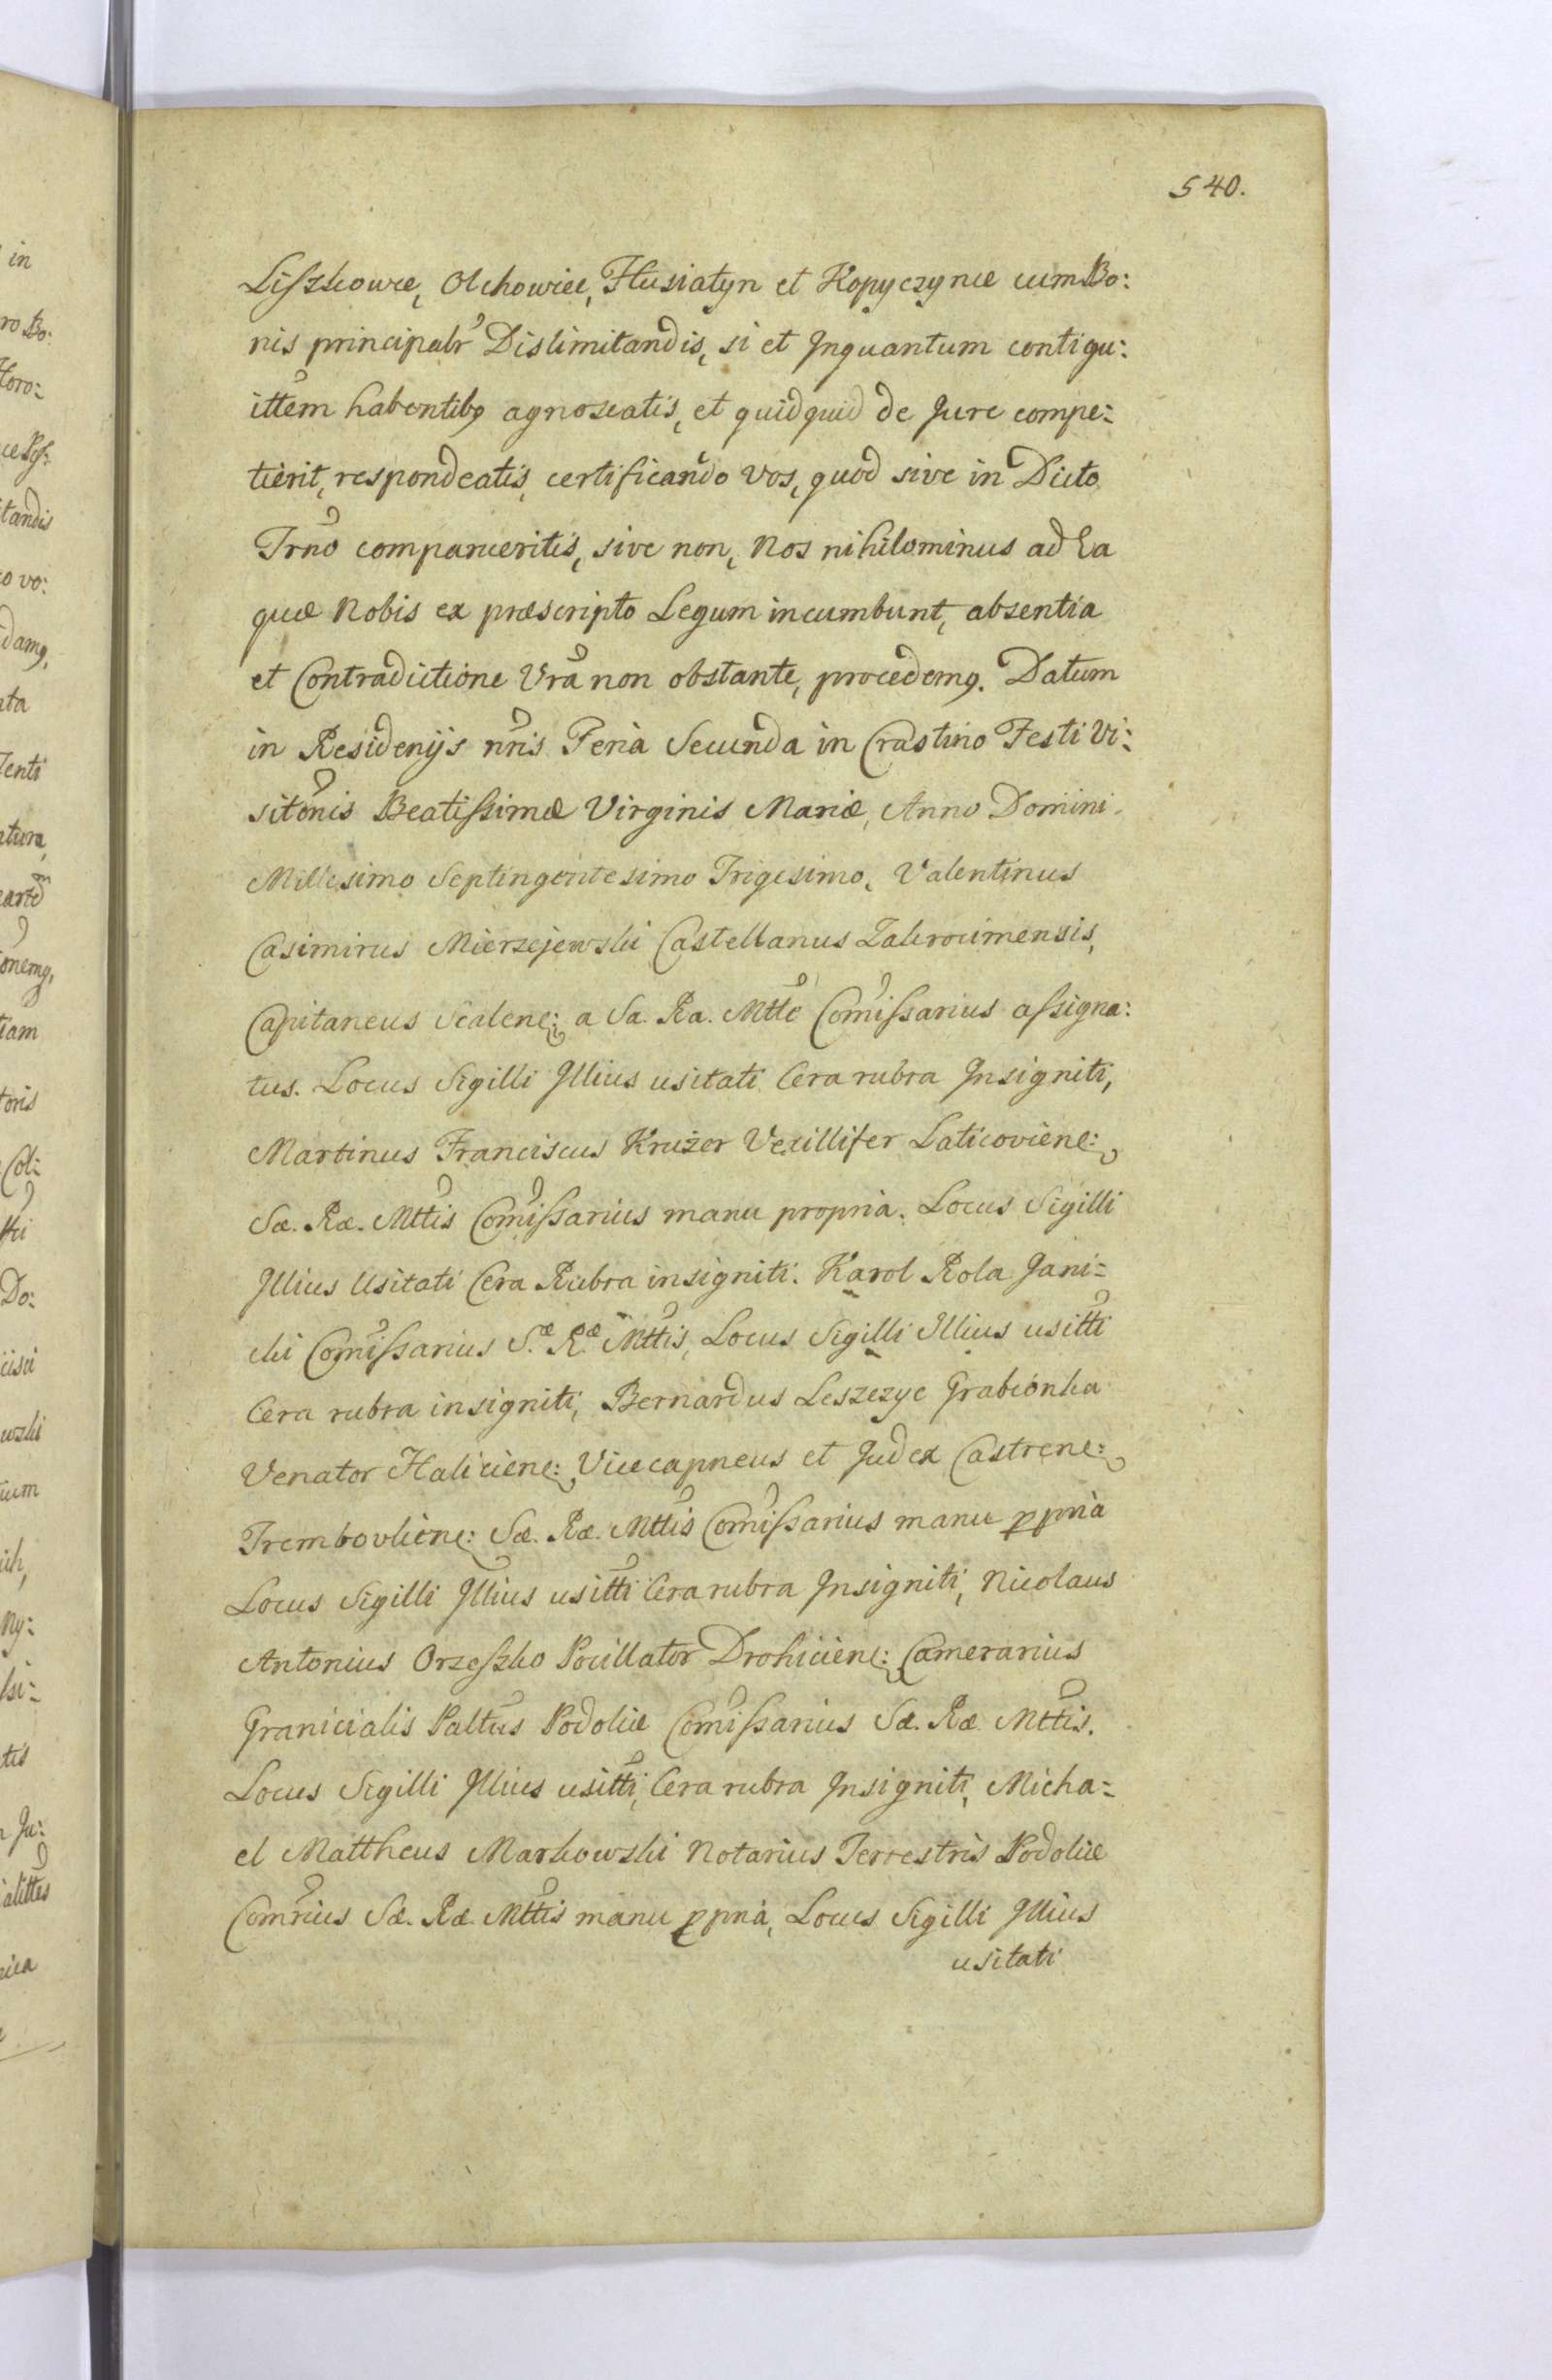 540.
Liszkowce, Olchowiec, Husiatyn et Kopyczynce cum Bo:
nis principalr Dislimitandis, si et Inquantum contigu:
ittem habentibꝰ agnoscatis, et quidquid de Jure compe:
tierit, respondeatis, certificando vos, quod sive in Dicto
Trno comparueritis, sive non, Nos nihilominus ad Ea
quæ Nobis ex præscripto Legum incumbunt, absentia
et Contradictione Vra non obstante, procedemꝰ. Datum
in Residenijs nris Feria Secunda in Crastino Festi Vi:
sitonis Beatissimæ Virginis Mariæ, Anno Domini
Millesimo Septingentesimo Trigesimo, Valentinus
Casimirus Mierzejewski Castellanus Zakrocimensis,
Capitaneus Scalene: a Sa. Ra. Mtte Comissarius assigna:
tus. Locus Sigilli Illius usitati Cera rubra Insigniti,
Martinus Franciscus Kruzer Vexillifer Laticoviene:
Sæ. Ræ. Mttis Comissarius manu propria. Locus Sigilli
Illius Usitati Cera Rubra insigniti. Karol Rola Jani:
cki Comissarius S.æ R.æ Mttis, Locus Sigilli Illius usitti
Cera rubra insigniti, Bernardus Leszczyc Grabionka
Venator Haliciene: Vicecapneus et Judex Castrene:
Trembovliene: Sæ. Ræ. Mttis Comissarius manu ppria
Locus Sigilli Illius usitti Cera rubra Insigniti, Nicolaus
Antonius Orzeszko Pocillator Drohiciene: Camerarius
Granicialis Paltus Podoliæ Comissarius Sæ. Ræ. Mttis.
Locus Sigilli Illius usitti, Cera rubra Insigniti, Micha:
el Mattheus Markowski Notarius Terrestris Podoliæ
Comrius Sæ. Ræ. Mttis manu ppria, Locus Sigilli Illius
usitati